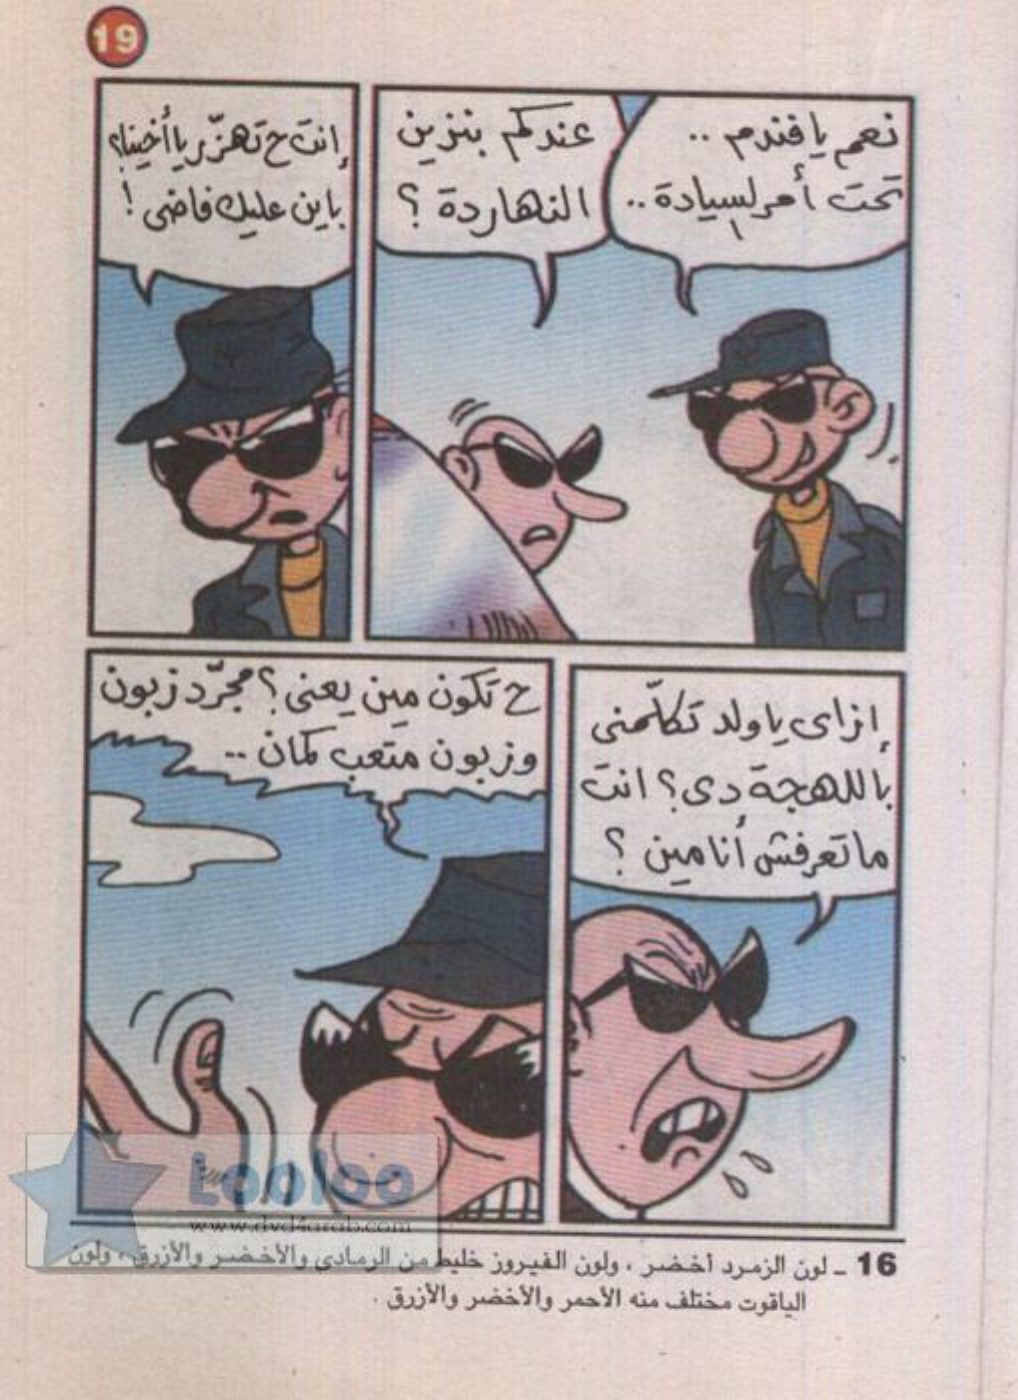 19
نعم يا فندم ..
تحت أمر لسيادة ..
عندكم بنزين
النهاردة ؟
إنت ح تهزّر يا أخينا ؟
باين عليك فاضى !
إزاى يا ولد تكلّمنى
باللهجة دى ؟ انت
ما تعرفش أنا مين ؟
ح تكون مين يعنى ؟ مجرّد زبون
وزبون متعب كمان ..
Looloo
www.dvd4arab.com
16 ـ لون الزمرد أخضر ، ولون الفيروز خليط من الرمادى والأخضر والأزرق ، ولون
الياقوت مختلف منه الأحمر والأخضر والأزرق .